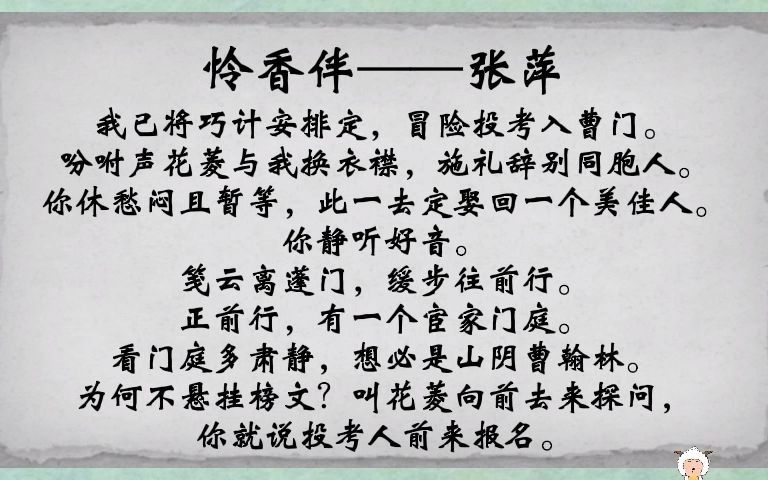 怜香伴——张萍
我已将巧计安排定，冒险投考入曹门。
吩咐声花菱与我换衣襟，施礼辞别同胞人。
你休愁闷且暂等，此一去定娶回一个美佳人。
你静听好音。
笺云离蓬门，缓步往前行。
正前行，有一个宦家门庭。
看门庭多肃静，想必是山阴曹翰林。
为何不悬挂榜文？叫花菱向前去来探问，
你就说投考人前来报名。